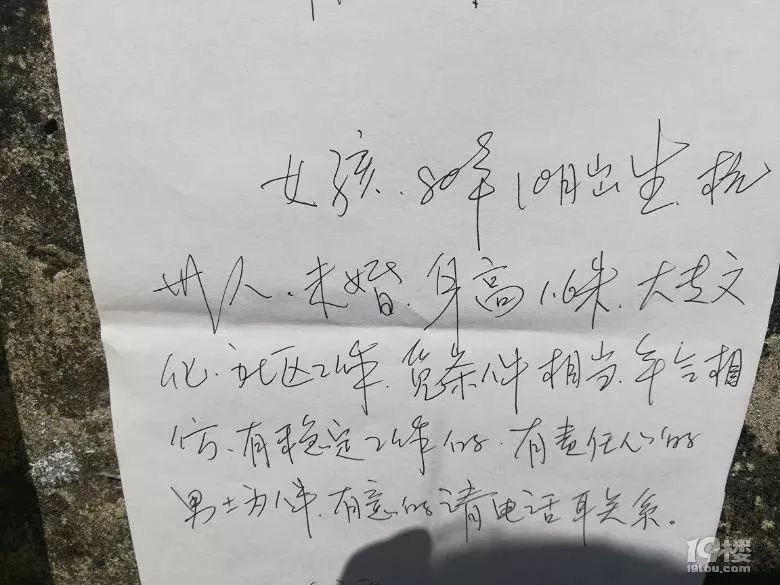 女孩.80年10月出生.杭
州人.未婚.身高1.6米.大专文
化.社区工作.觅条件相当.年令相
仿、有稳定工作的.有责任心的
男士为伴.有意的请电话联关系。
19楼
19lou.com